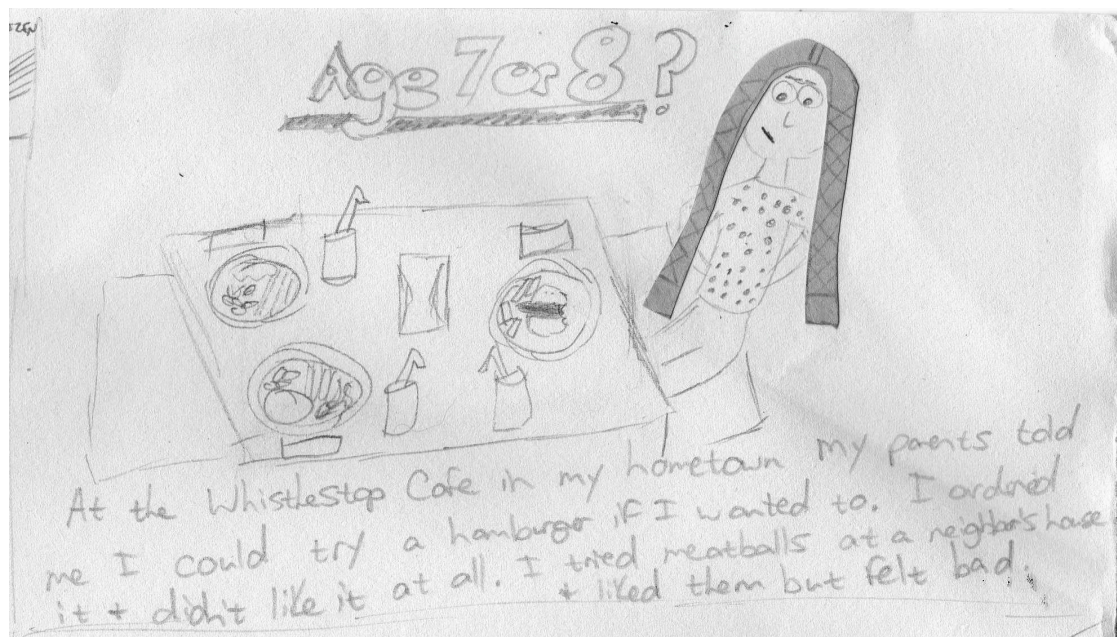 Age 7 or 8?
At the Whistlestop Cafe in my hometown my parents told
me I could try a hamburger if I wanted to. I ordered
it + didn't like it at all. I tried meatballs at a neighbor's house
+ liked them but felt bad.